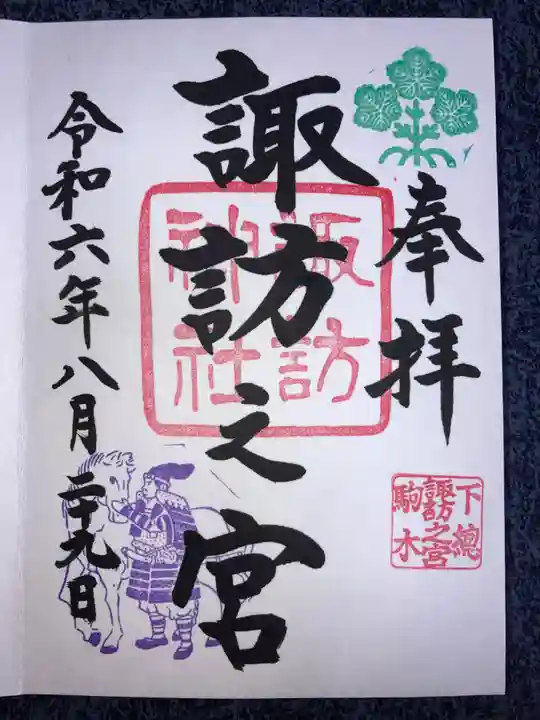 奉拝
諏訪之宮
諏訪
神社
下總
諏訪之宮
駒木
令和六年八月二十九日